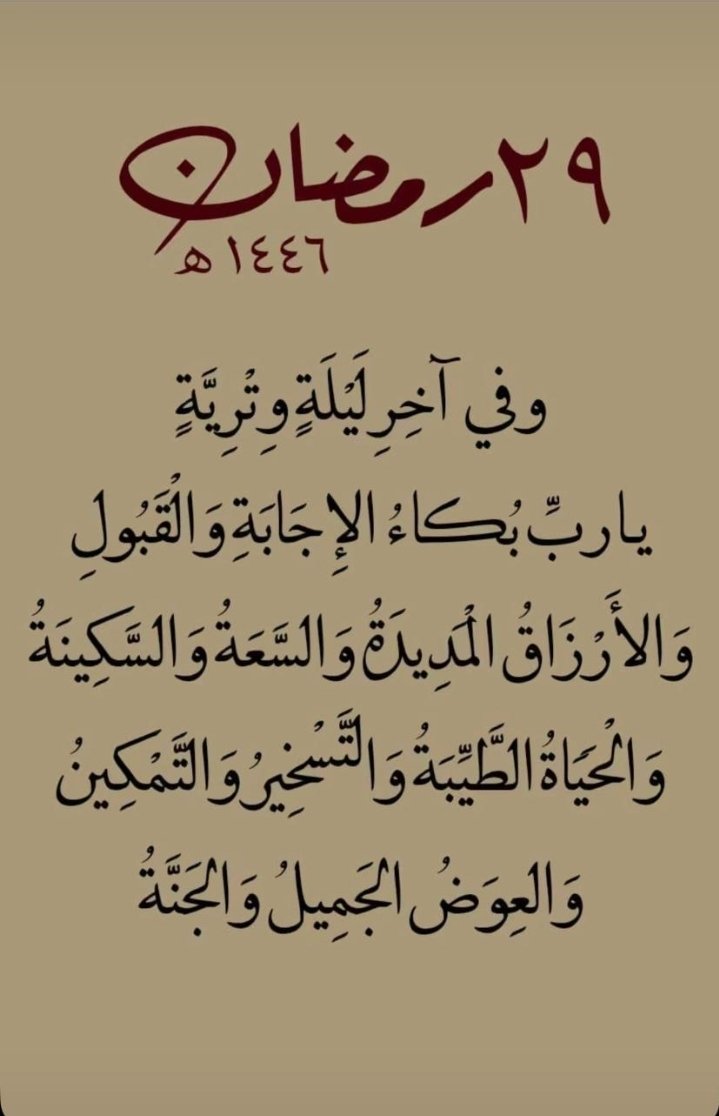 ٢٩ رمضان
١٤٤٦ هـ
وفي آخِرِ لَيْلَةٍ وِتْرِيَّةٍ
يا ربِّ بُكاءُ الإِجَابَةِ وَالْقَبُولِ
وَالأَرْزَاقُ الْمَدِيدَةُ وَالسَّعَةُ وَالسَّكِينَةُ
وَالْحَيَاةُ الطَّيِّبَةُ وَالتَّسْخِيرُ وَالتَّمْكِينُ
وَالعِوَضُ الجَمِيلُ وَالجَنَّةُ